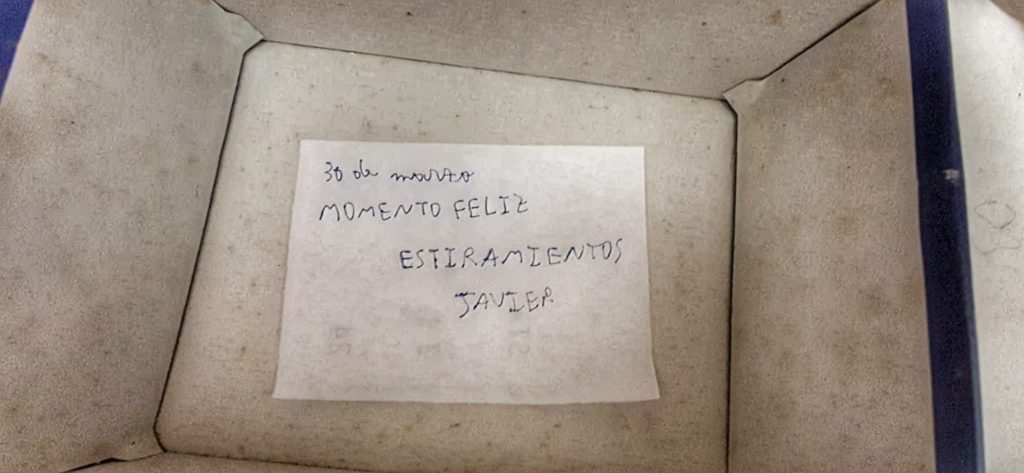 30 de marzo
MOMENTO FELIZ
ESTIRAMIENTOS
JAVIER